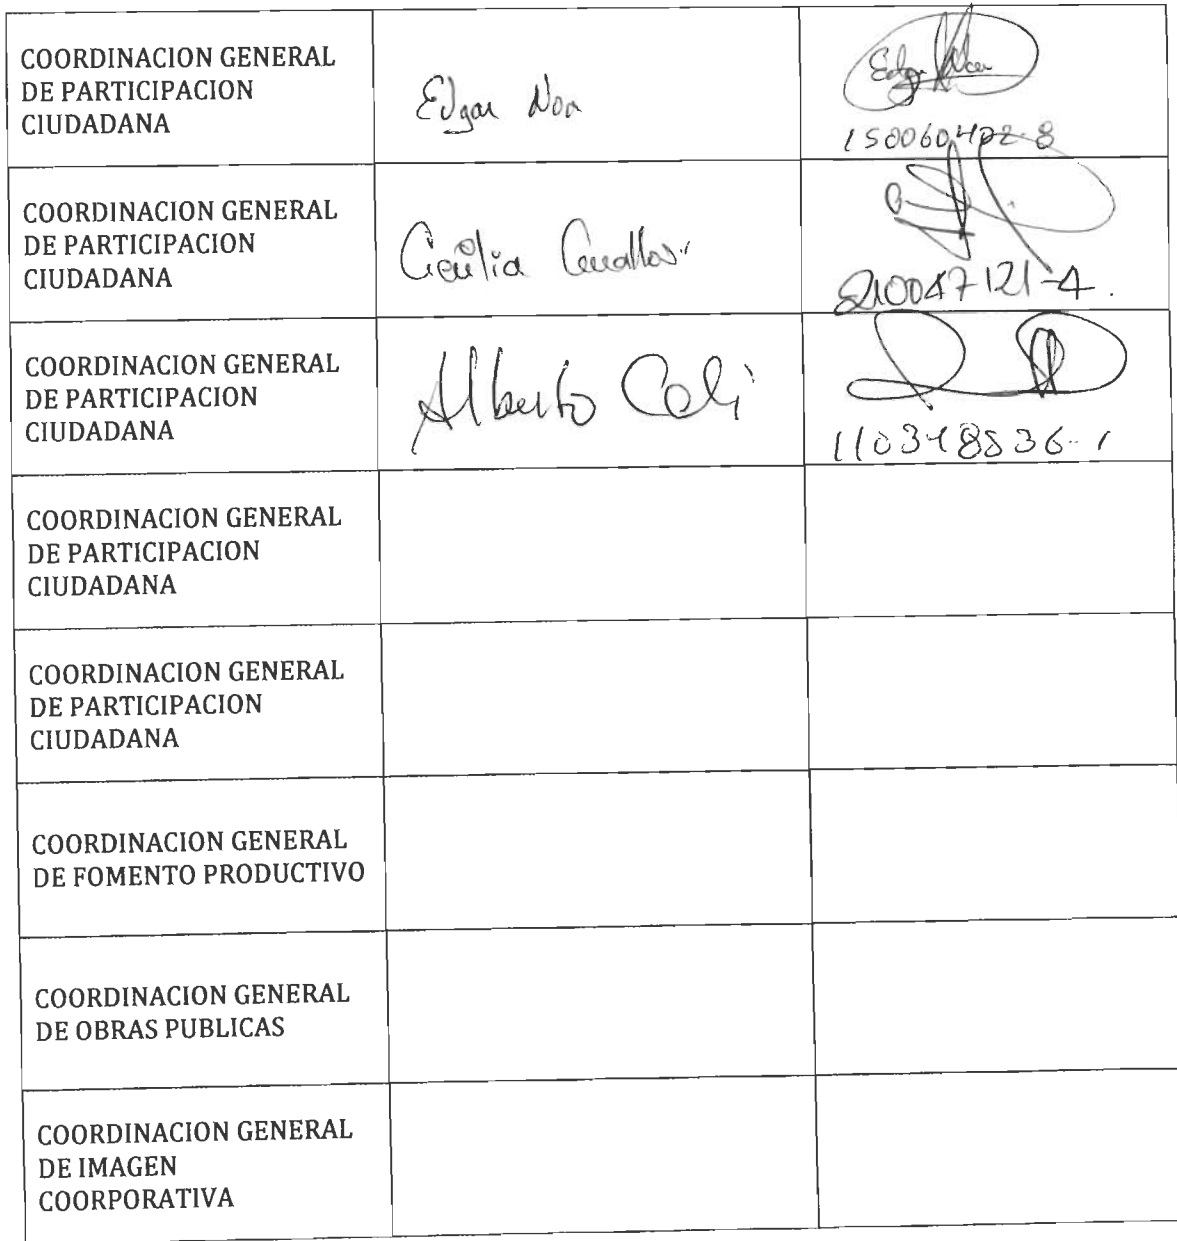 COORDINACION GENERAL
DE PARTICIPACION
CIUDADANA
Edgar
150060402-8
COORDINACION GENERAL
DE PARTICIPACION
CIUDADANA
Cecilia Cevallos
210047121-4.
COORDINACION GENERAL
DE PARTICIPACION
CIUDADANA
Alberto Celi
110348836-1
COORDINACION GENERAL
DE PARTICIPACION
CIUDADANA
COORDINACION GENERAL
DE PARTICIPACION
CIUDADANA
COORDINACION GENERAL
DE FOMENTO PRODUCTIVO
COORDINACION GENERAL
DE OBRAS PUBLICAS
COORDINACION GENERAL
DE IMAGEN
COORPORATIVA